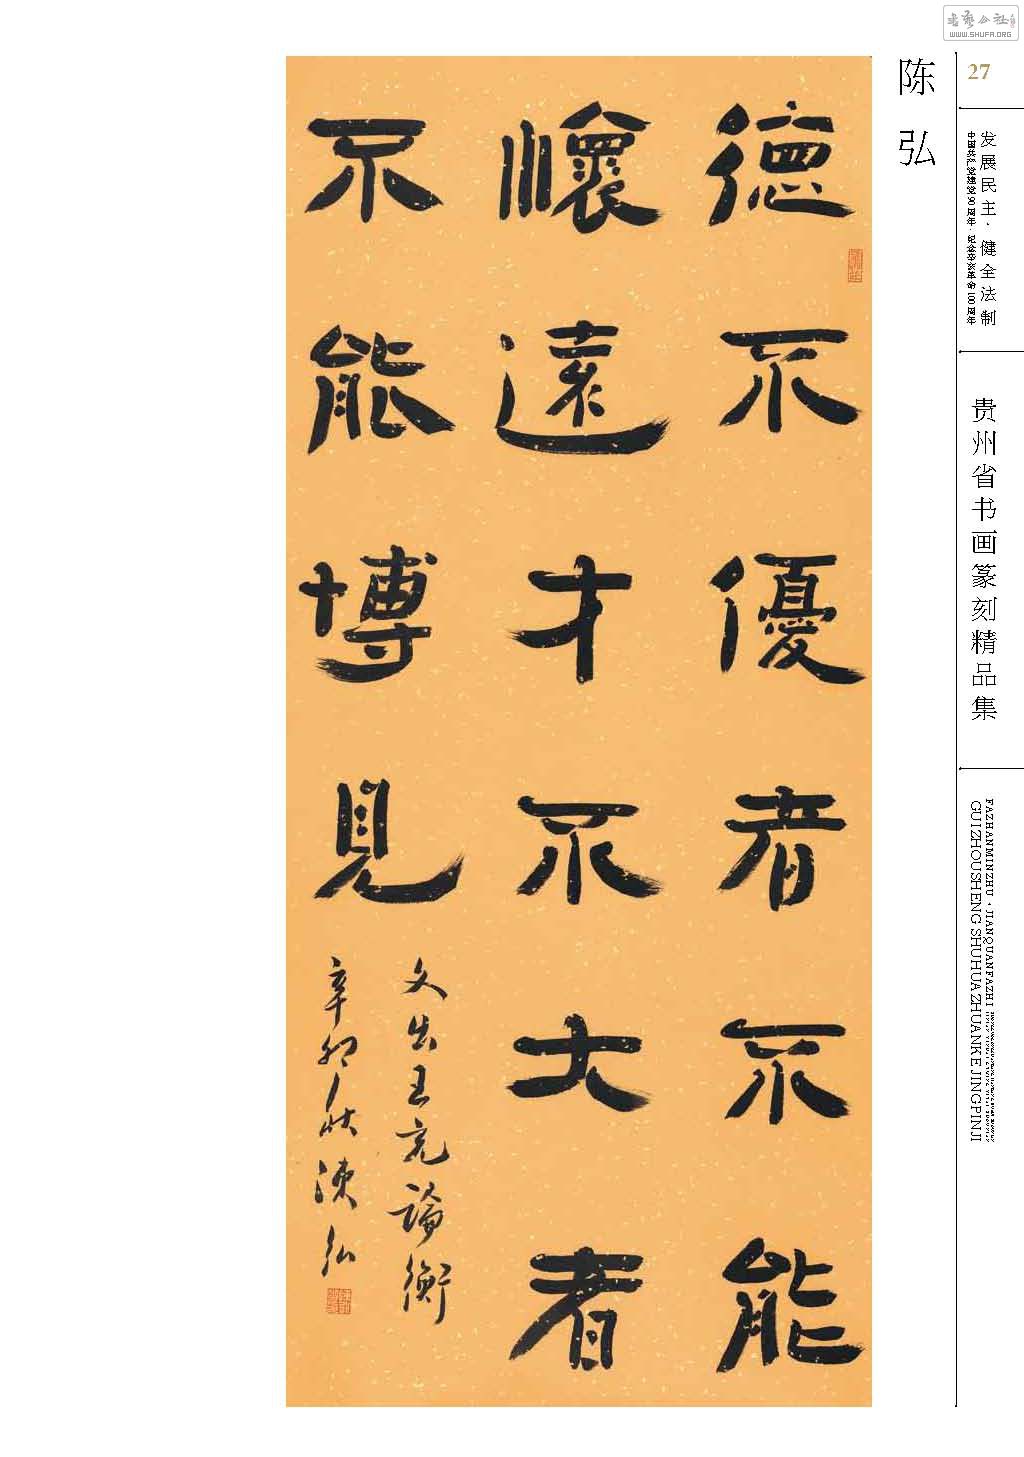 書藝公社
WWW.SHUFA.ORG
27
发展民主·健全法制
中国共产党建党90周年·纪念辛亥革命100周年
贵州省书画篆刻精品集
FAZHANMINZHU·JIANQUANFAZHI
GUIZHOUSHENG SHUHUAZHUANKE JINGPINJI
陈弘
德不優者不能
懷遠才不大者
不能博見
文出王充論衡
辛卯秋陳弘